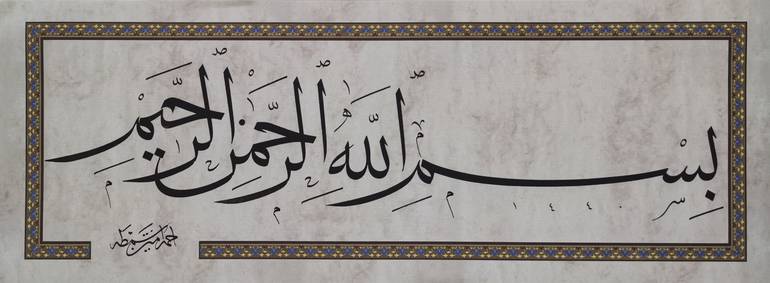 بِسْمِ اللَّهِ الرَّحْمٰنِ الرَّحِيْمِ
١٤٤٠
احمد طه